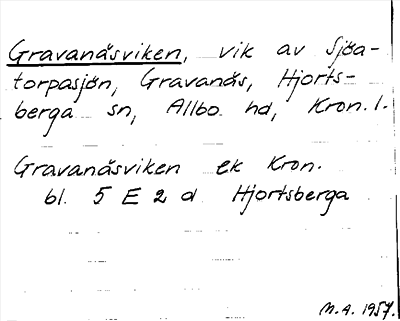 Gravanäsviken, vik av Sjöa-
torpasjön, Gravanäs, Hjorts-
berga sn, Allbo hd, Kron. l.
Gravanäsviken ek Kron.
bl. 5 E 2 d Hjortsberga
M.A. 1957.